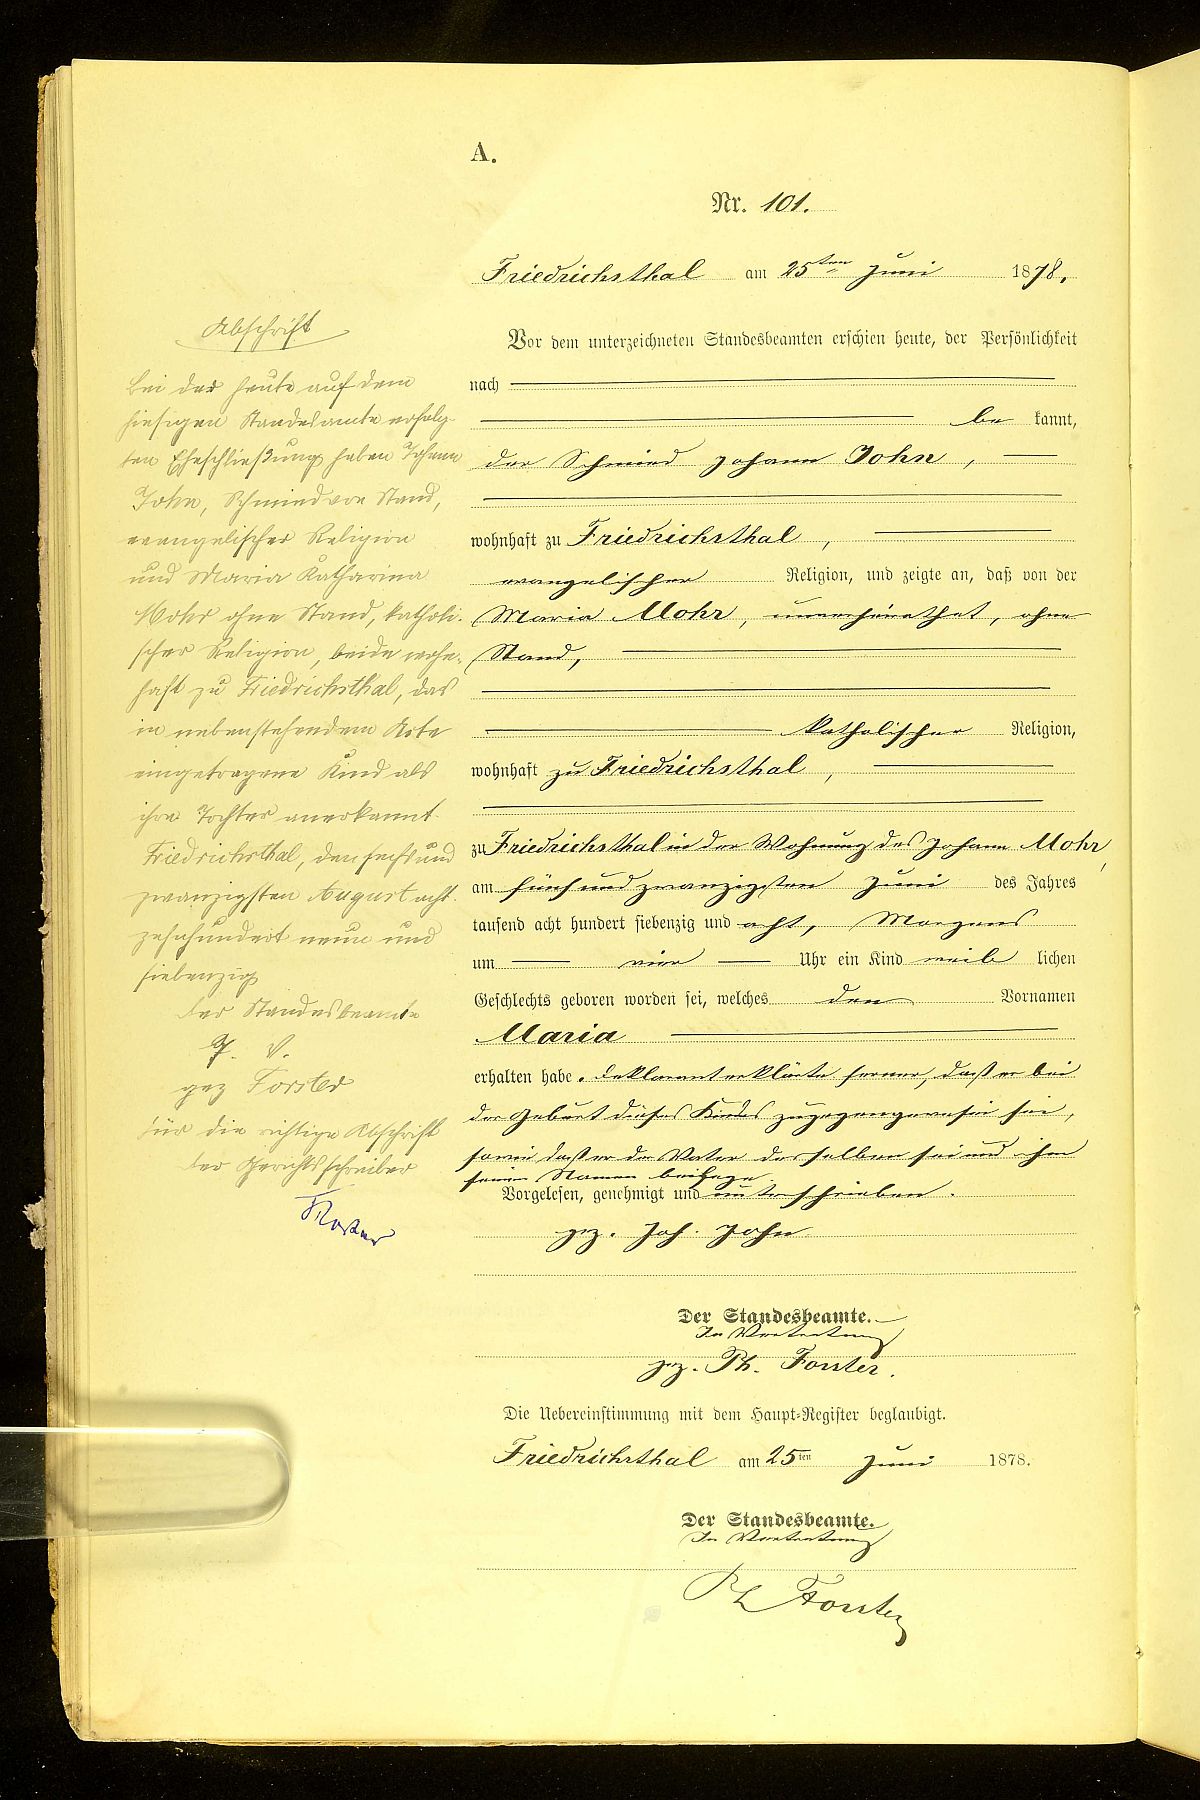 A.
Nr. 101.
Friedrichsthal am 25ten Juni 1878.
Vor dem unterzeichneten Standesbeamten erschien heute, der Persönlichkeit
nach
be kannt,
der Schmied Johann John,
wohnhaft zu Friedrichsthal,
evangelischer Religion, und zeigte an, daß von der
Maria Mohr, unverheirathet, ohne
Stand,
katholischer Religion,
wohnhaft zu Friedrichsthal,
zu Friedrichsthal in der Wohnung des Johann Mohr,
am fünf und zwanzigsten Juni des Jahres
tausend acht hundert siebenzig und acht, Morgens
um vier Uhr ein Kind weib lichen
Geschlechts geboren worden sei, welches den Vornamen
Maria
erhalten habe. Deklarant erklärte ferner, daß er bei
der Geburt dieses Kindes zugegen gewesen sei,
sowie daß er der Vater desselben sei und ihm
seinen Namen beilege.
Vorgelesen, genehmigt und unterschrieben.
gez. Joh. John
Der Standesbeamte.
In Vertretung
gez. Ph. Forster.
Die Uebereinstimmung mit dem Haupt-Register beglaubigt.
Friedrichsthal am 25ten Juni 1878.
Der Standesbeamte.
In Vertretung
Ph Forster
Abschrift
Bei der heute auf dem
hiesigen Standesamte erfolg-
ten Eheschließung haben Johann
John, Schmied von Stand,
evangelischer Religion
und Maria Katharina
Mohr ohne Stand, katholi-
scher Religion, beide wohn-
haft zu Friedrichsthal, das
in nebenstehendem Akte
eingetragene Kind als
ihre Tochter anerkannt.
Friedrichsthal, den sechs und
zwanzigsten August acht-
zehnhundert neun und
siebenzig
Der Standesbeamte
J. V.
gez Forster
Für die richtige Abschrift
Der Gerichtsschreiber